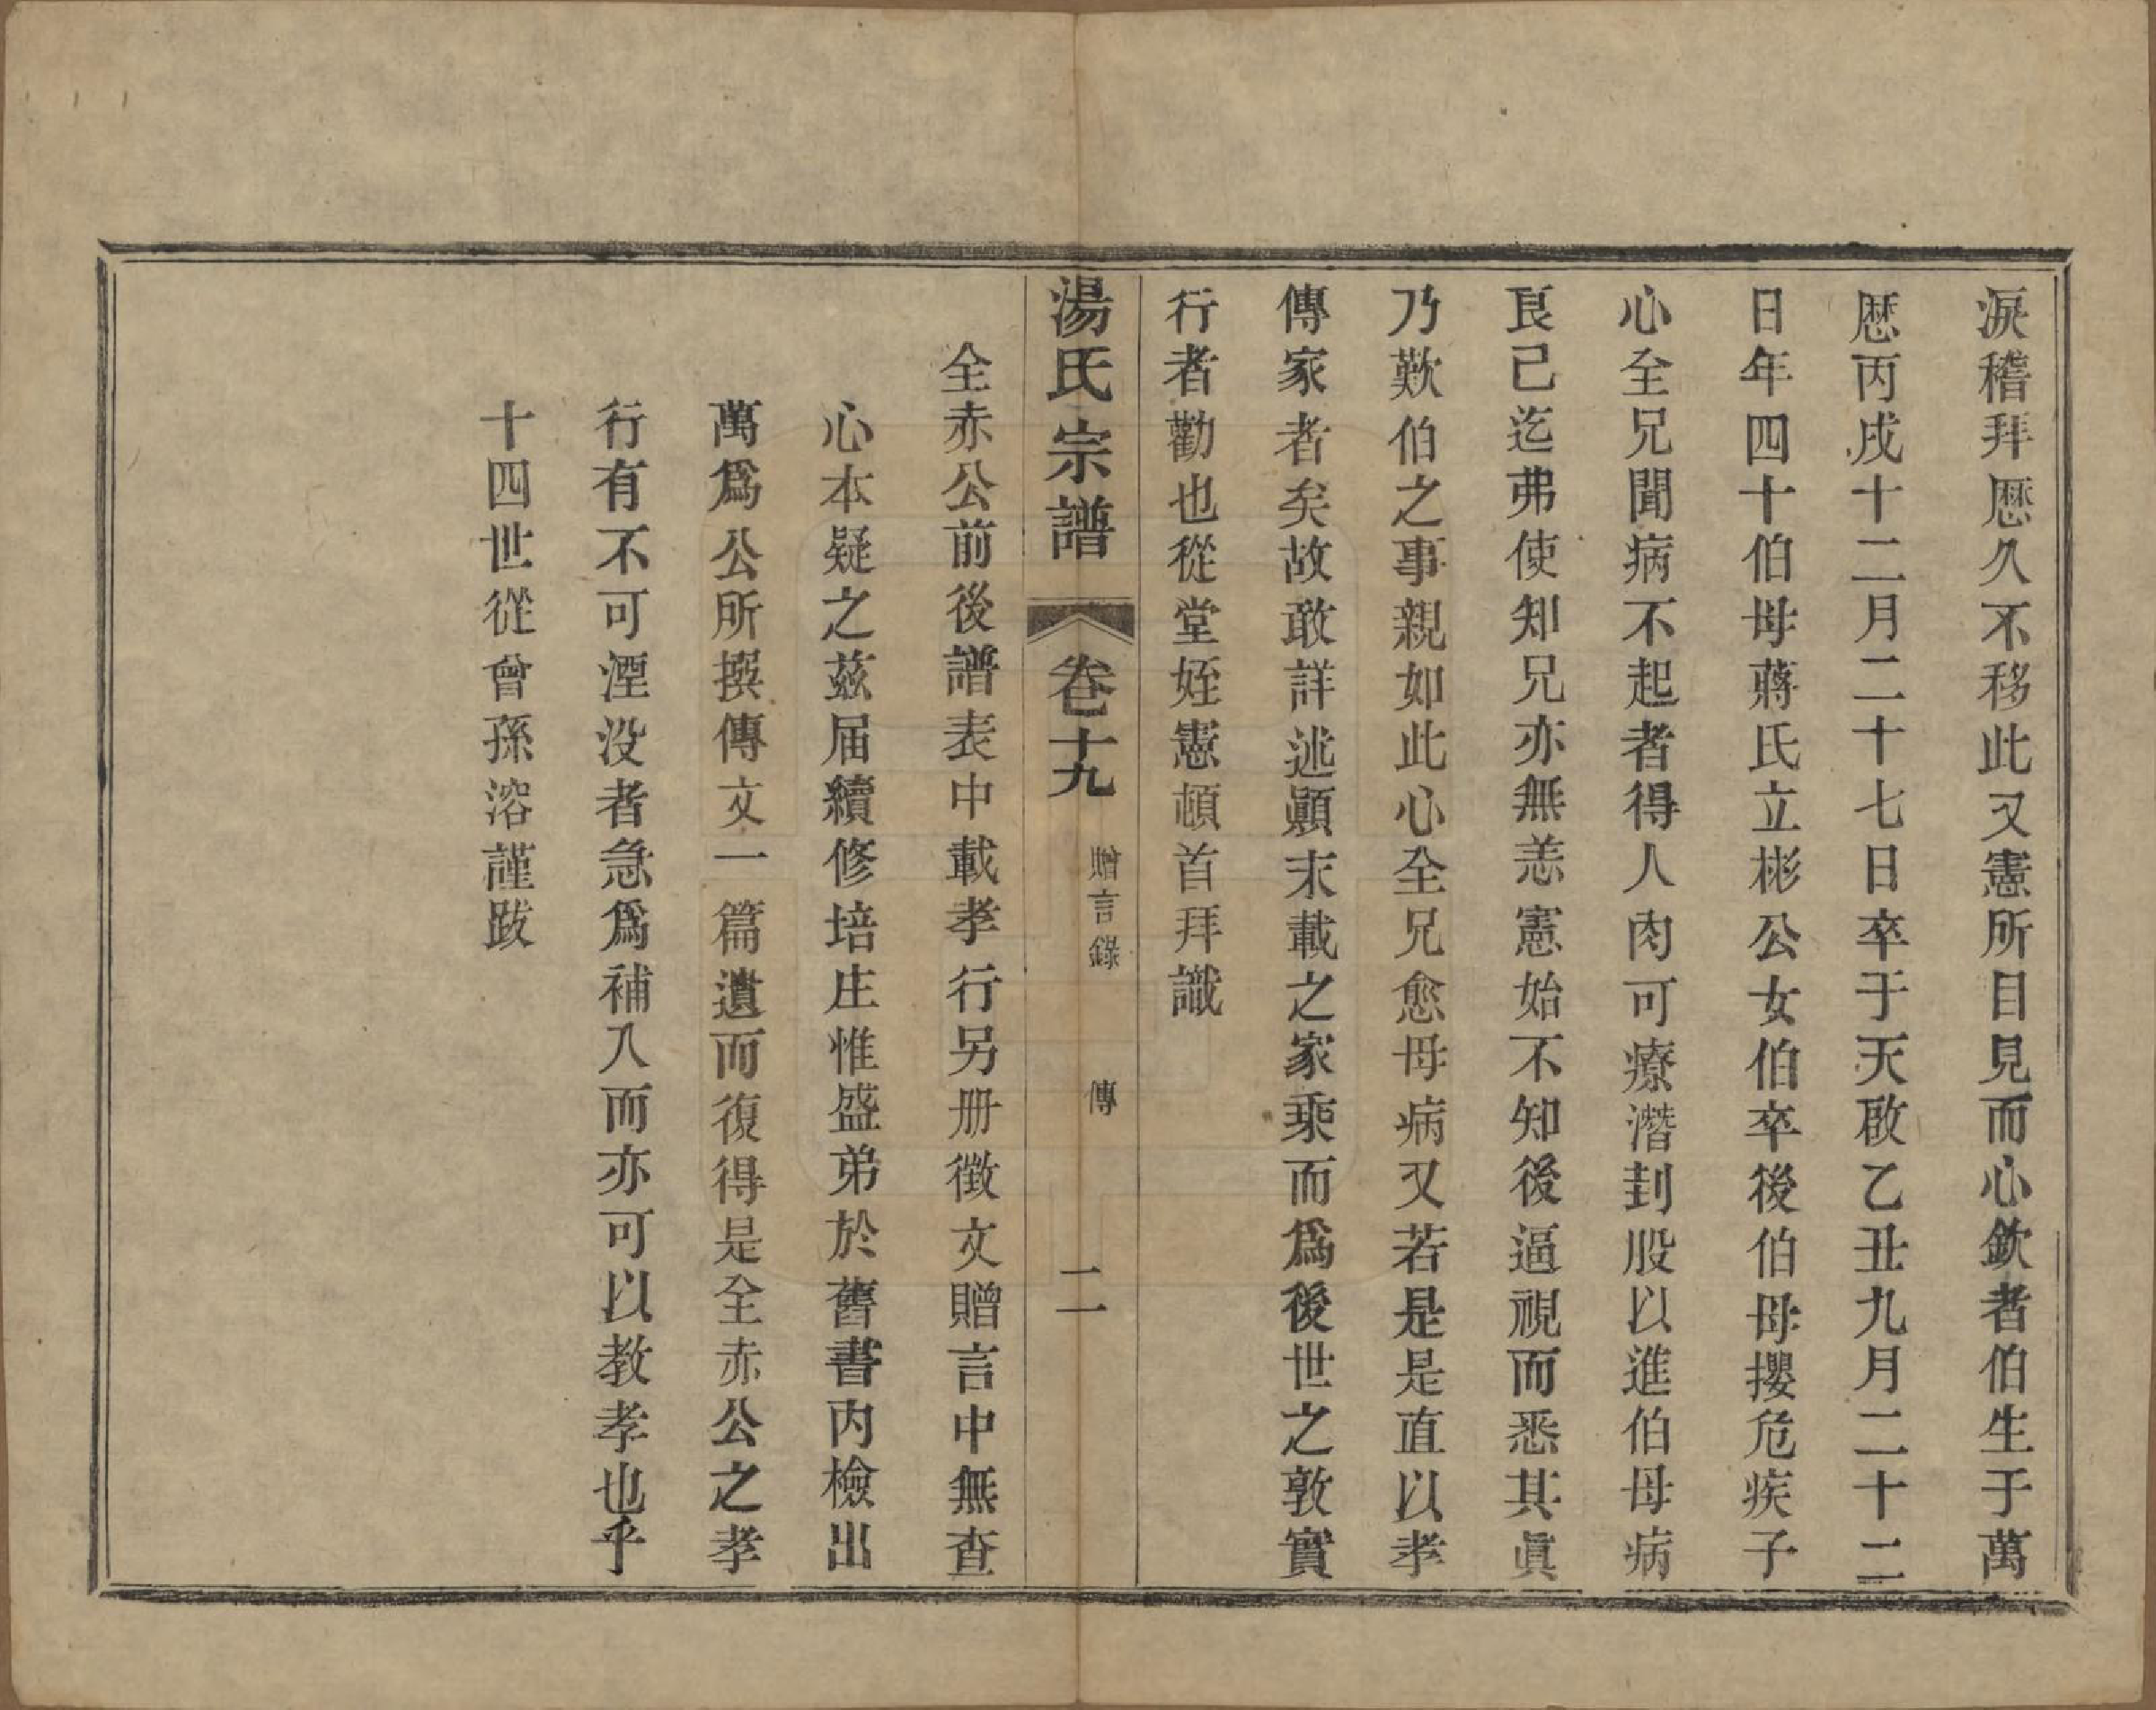 淚稽拜歷久不移此又憲所目見而心欽者伯生于萬
歷丙戌十二月二十七日卒于天啟乙丑九月二十二
日年四十伯母蔣氏立彬公女伯卒後伯母攖危疾子
心全兄聞病不起者得人肉可療潛刲股以進伯母病
良已迄弗使知兄亦無恙憲始不知後逼視而悉其眞
乃歎伯之事親如此心全兄愈母病又若是是直以孝
傳家者矣故敢詳述顚末載之家乘而爲後世之敦實
行者勸也從堂姪憲頓首拜識
湯氏宗譜 卷十九 贈言錄 傳 二
全赤公前後譜表中載孝行另册徵文贈言中無查
心本疑之茲届續修培庄惟盛弟於舊書内檢出
萬爲公所撰傳文一篇遺而復得是全赤公之孝
行有不可湮没者急爲補入而亦可以教孝也乎
十四世從曾孫溶謹跋